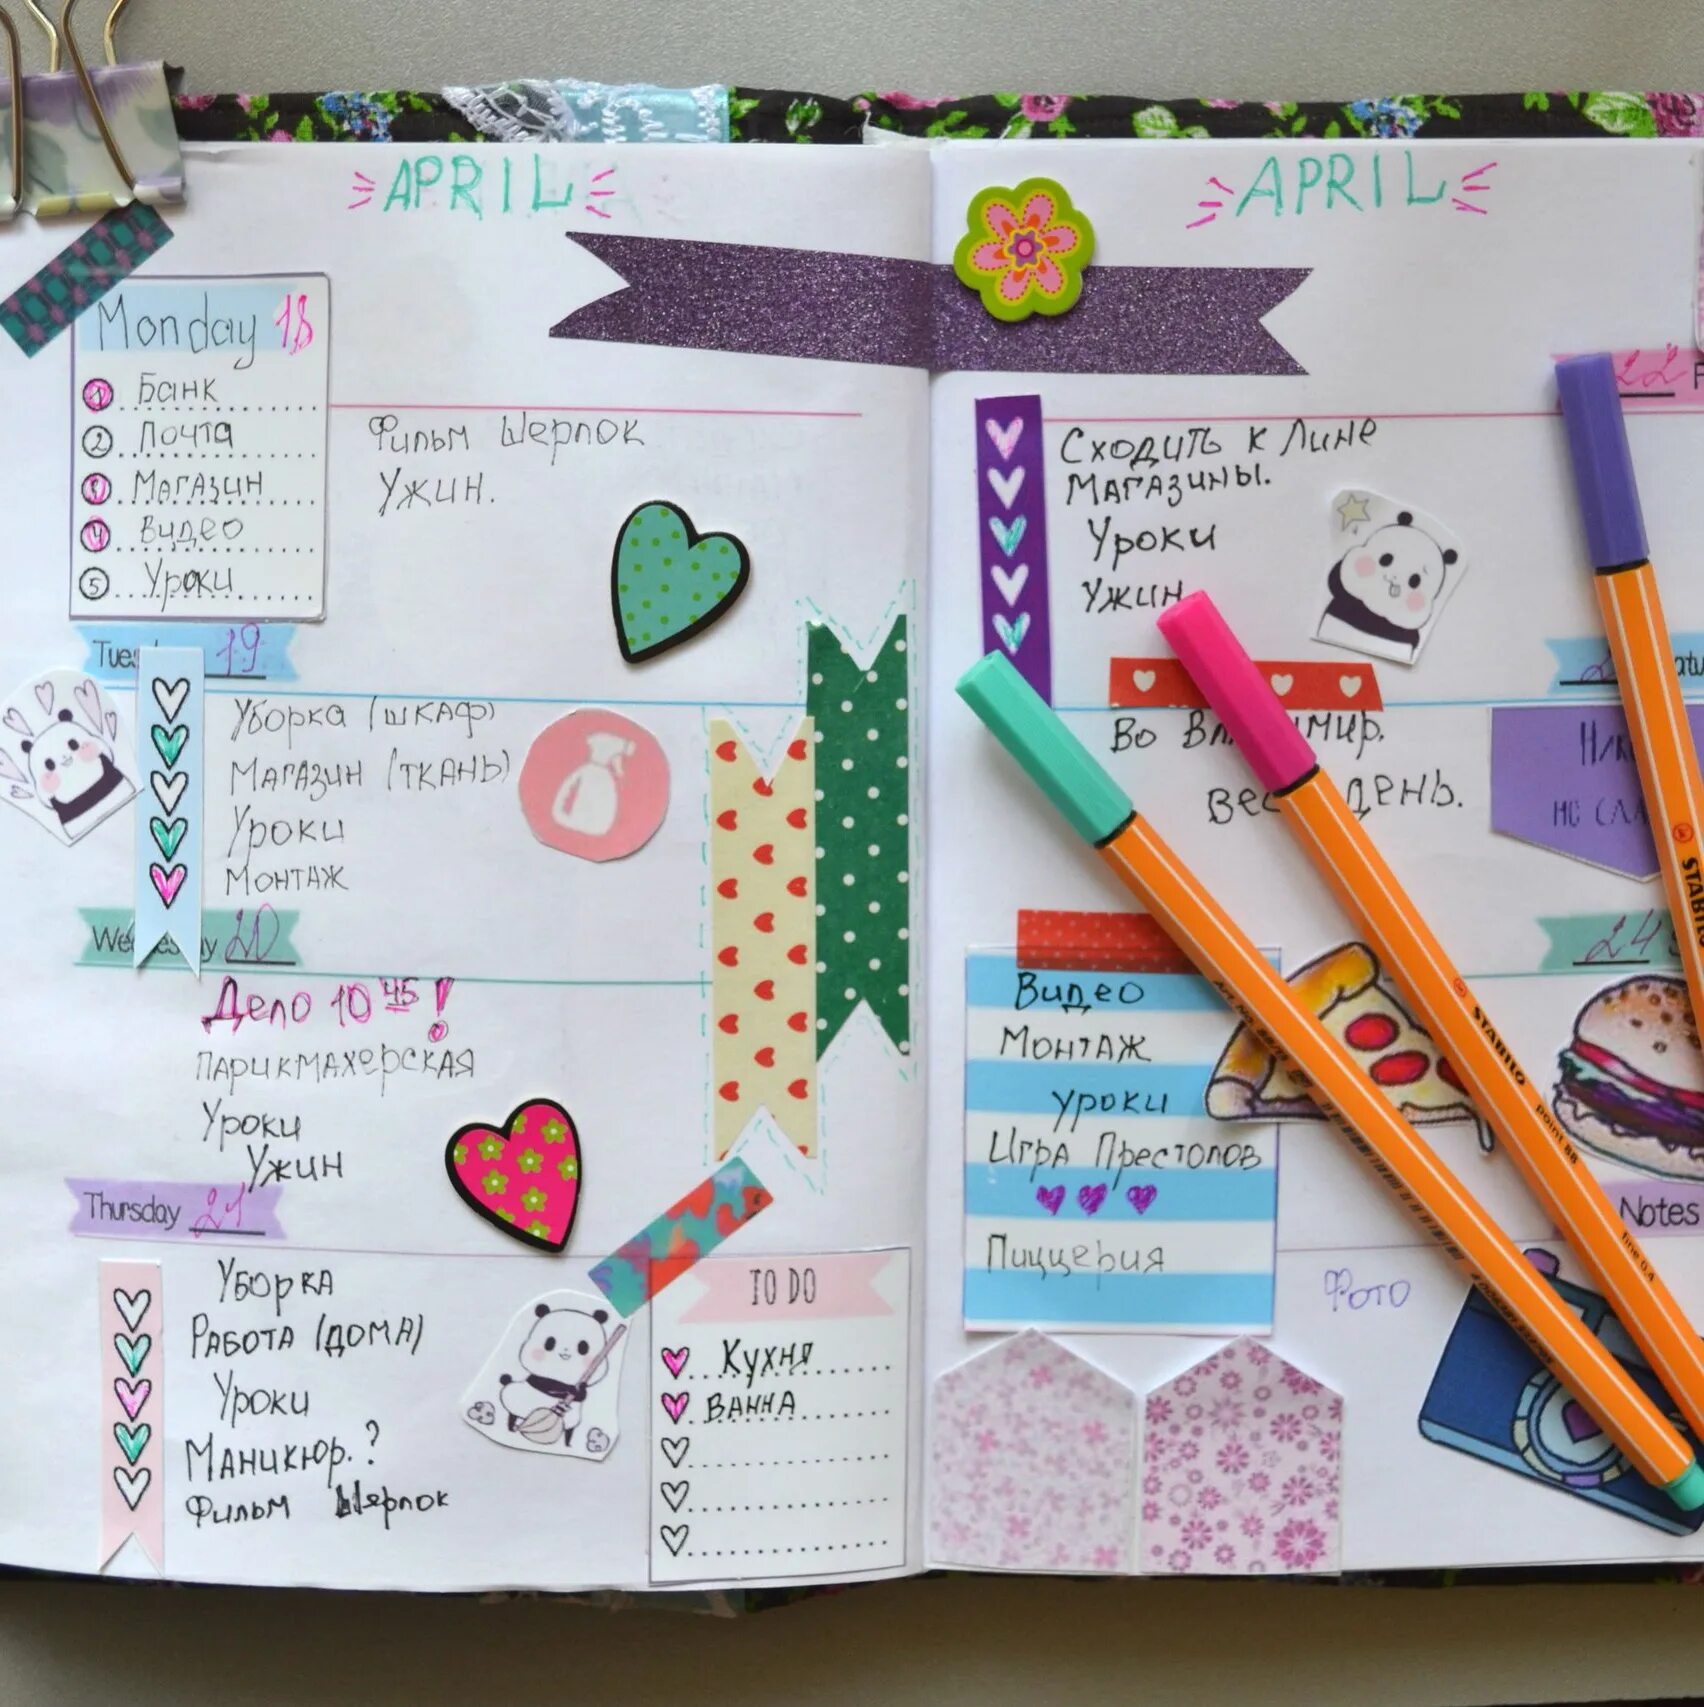 APRIL
Monday 18
1 Банк
2 Почта
3 Магазин
4 Видео
5 Уроки
Фильм Шерлок
Ужин.
19
Уборка (шкаф)
Магазин (ткань)
Уроки
Монтаж
Wednesday 20
Дело 10 45!
парикмахерская
Уроки
Ужин
Thursday 21
Уборка
Работа (дома)
Уроки
Маникюр.?
Фильм Шерлок
TO DO
Кухня
Ванна
APRIL
22
Сходить к Лине
Магазины.
Уроки
Ужин
Во
день.
24
Видео
Монтаж
уроки
Игра Престолов
Пиццерия
Notes
Фото
STABILO
point 88
fine 0.4